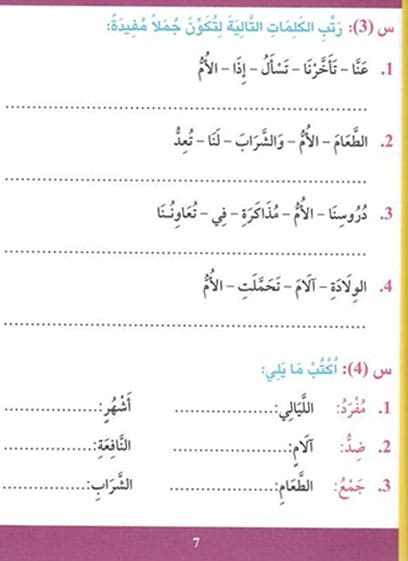 س (3): رَتِّبِ الكَلِمَاتِ التَّالِيَةَ لِتُكَوِّنَ جُمَلاً مُفِيدَةً:
1. عَنَّا – تَأَخَّرْنَا – تَسْأَلُ – إِذَا – الأُمُّ
................................................................
2. الطَّعَامَ – الأُمُّ – وَالشَّرَابَ – لَنَا – تُعِدُّ
................................................................
3. دُرُوسِنَا – الأُمُّ – مُذَاكَرَةِ – فِي – تُعَاوِنُنَا
................................................................
4. الوِلَادَةِ – آلَامَ – تَحَمَّلَتِ – الأُمُّ
................................................................
س (4): اُكْتُبْ مَا يَلِي:
1. مُفْرَدُ: اللَّيَالِي:.................... أَشْهُرٍ:....................
2. ضِدُّ: آلَامٍ:.................... النَّافِعَةِ:....................
3. جَمْعُ: الطَّعَامِ:.................... الشَّرَابِ:....................
7